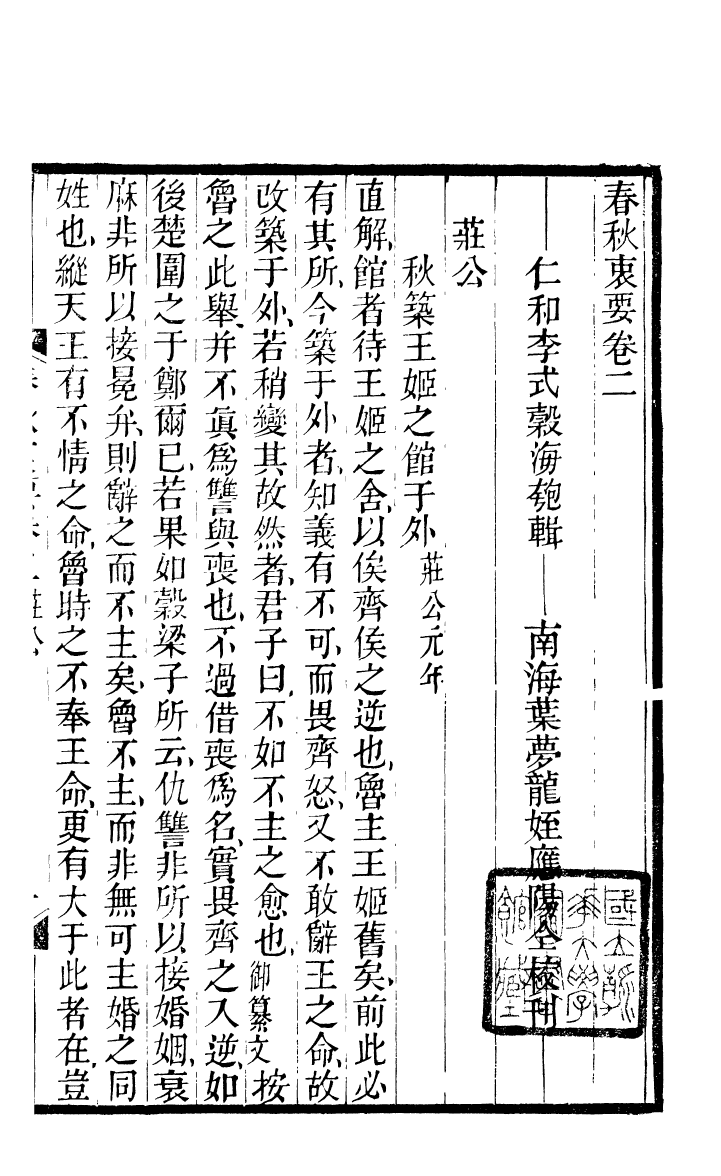 春秋衷要卷二
仁和李式穀海匏輯　南海葉夢龍姪應陽仝校刊
莊公
秋築王姬之館于外莊公元年
直解館者待王姬之舍以俟齊侯之逆也魯主王姬舊矣前此必
有其所今築于外者知義有不可而畏齊怒又不敢辭王之命故
改築于外若稍變其故然者君子曰不如不主之愈也御纂文按
魯之此舉幷不眞爲讐與喪也不過借喪爲名實畏齊之入逆如
後楚圍之于鄭爾已若果如穀梁子所云仇讐非所以接婚姻衰
麻非所以接冕弁則辭之而不主矣魯不主而非無可主婚之同
姓也縱天王有不情之命魯時之不奉王命更有大于此者在豈